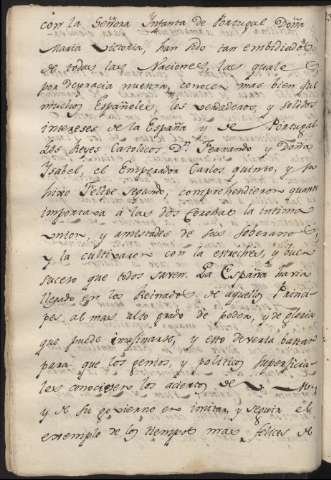 con la Señora Infanta de Portugal Doña
Maria Victoria, han sido tan embidiados
de todas las Naciones, las quales
por desgracia nuestra, conocen mas bien que
muchos Españoles, los verdaderos, y solidos
intereses de la España y de Portugal.
Los Reyes Catolicos Dn. Fernando y Doña
Isabel, el Emperador Carlos quinto, y su
hijo Felipe Segundo, comprehendieron quanto
importava á las dos Coronas la intima
union, y amistades de sus soberanos,
y la cultivaron con la estrechez, y buen
suceso que todos saven. La España havia
llegado en los Reinados de aquellos Princi-
pes al mas alto grado de poder, y de gloria
que puede imaginarse, y esto deveria bastar
para que los genios, y politicos superficia-
les conociesen los aciertos de
y de su govierno en imitar, y seguir el
exemplo de los tiempos mas felices de